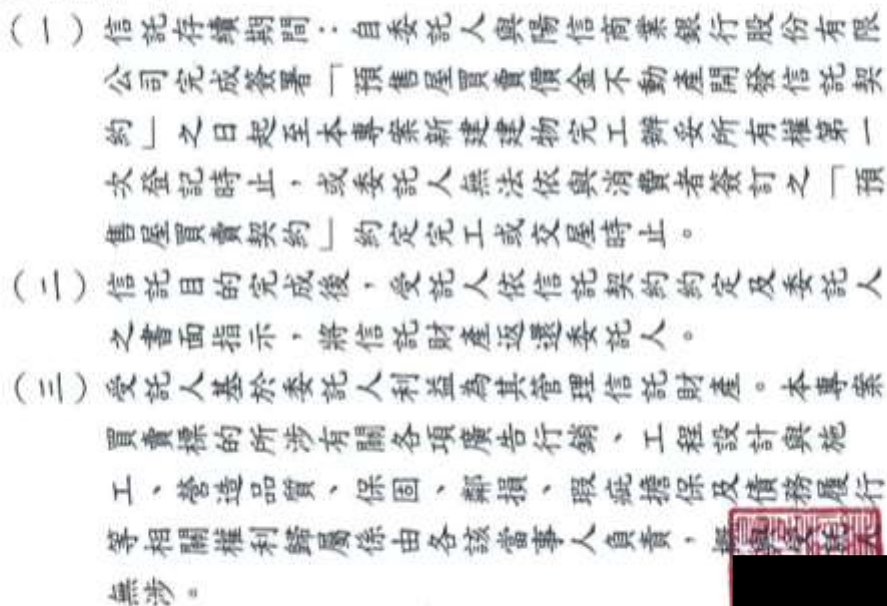 （一）信託存續期間：自委託人與陽信商業銀行股份有限
公司完成簽署「預售屋買賣價金不動產開發信託契
約」之日起至本專案新建建物完工辦妥所有權第一
次登記時止，或委託人無法依與消費者簽訂之「預
售屋買賣契約」約定完工或交屋時止。
（二）信託目的完成後，受託人依信託契約約定及委託人
之書面指示，將信託財產返還委託人。
（三）受託人基於委託人利益為其管理信託財產。本專案
買賣標的所涉有關各項廣告行銷、工程設計與施
工、營造品質、保固、鄰損、瑕疵擔保及債務履行
等相關權利歸屬係由各該當事人負責，
無涉。